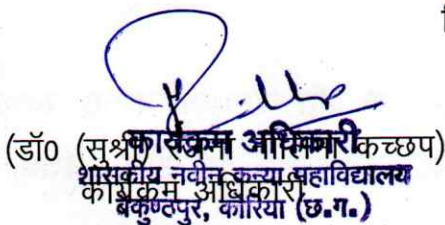 (डॉ0 (सुश्री) कच्छप)
कार्यक्रम अधिकारी
कार्यक्रम अधिकारी
शासकीय नवीन कन्या महाविद्यालय
बैकुण्ठपुर, कोरिया (छ.ग.)